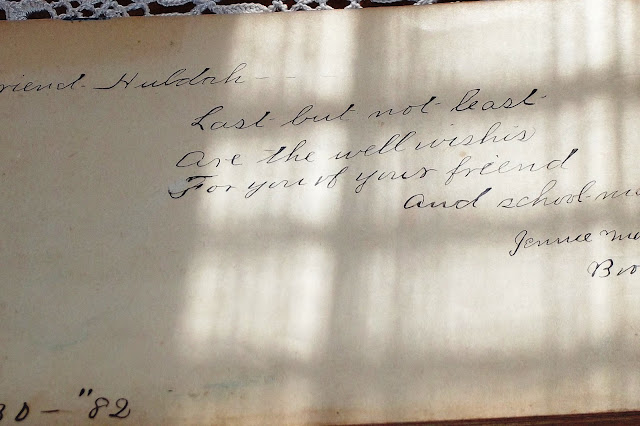 riend Huldah - - -
Last but not least
Are the well wishis
For you of your friend
And school-ma
Jennie Ma
Bro
30 - "82